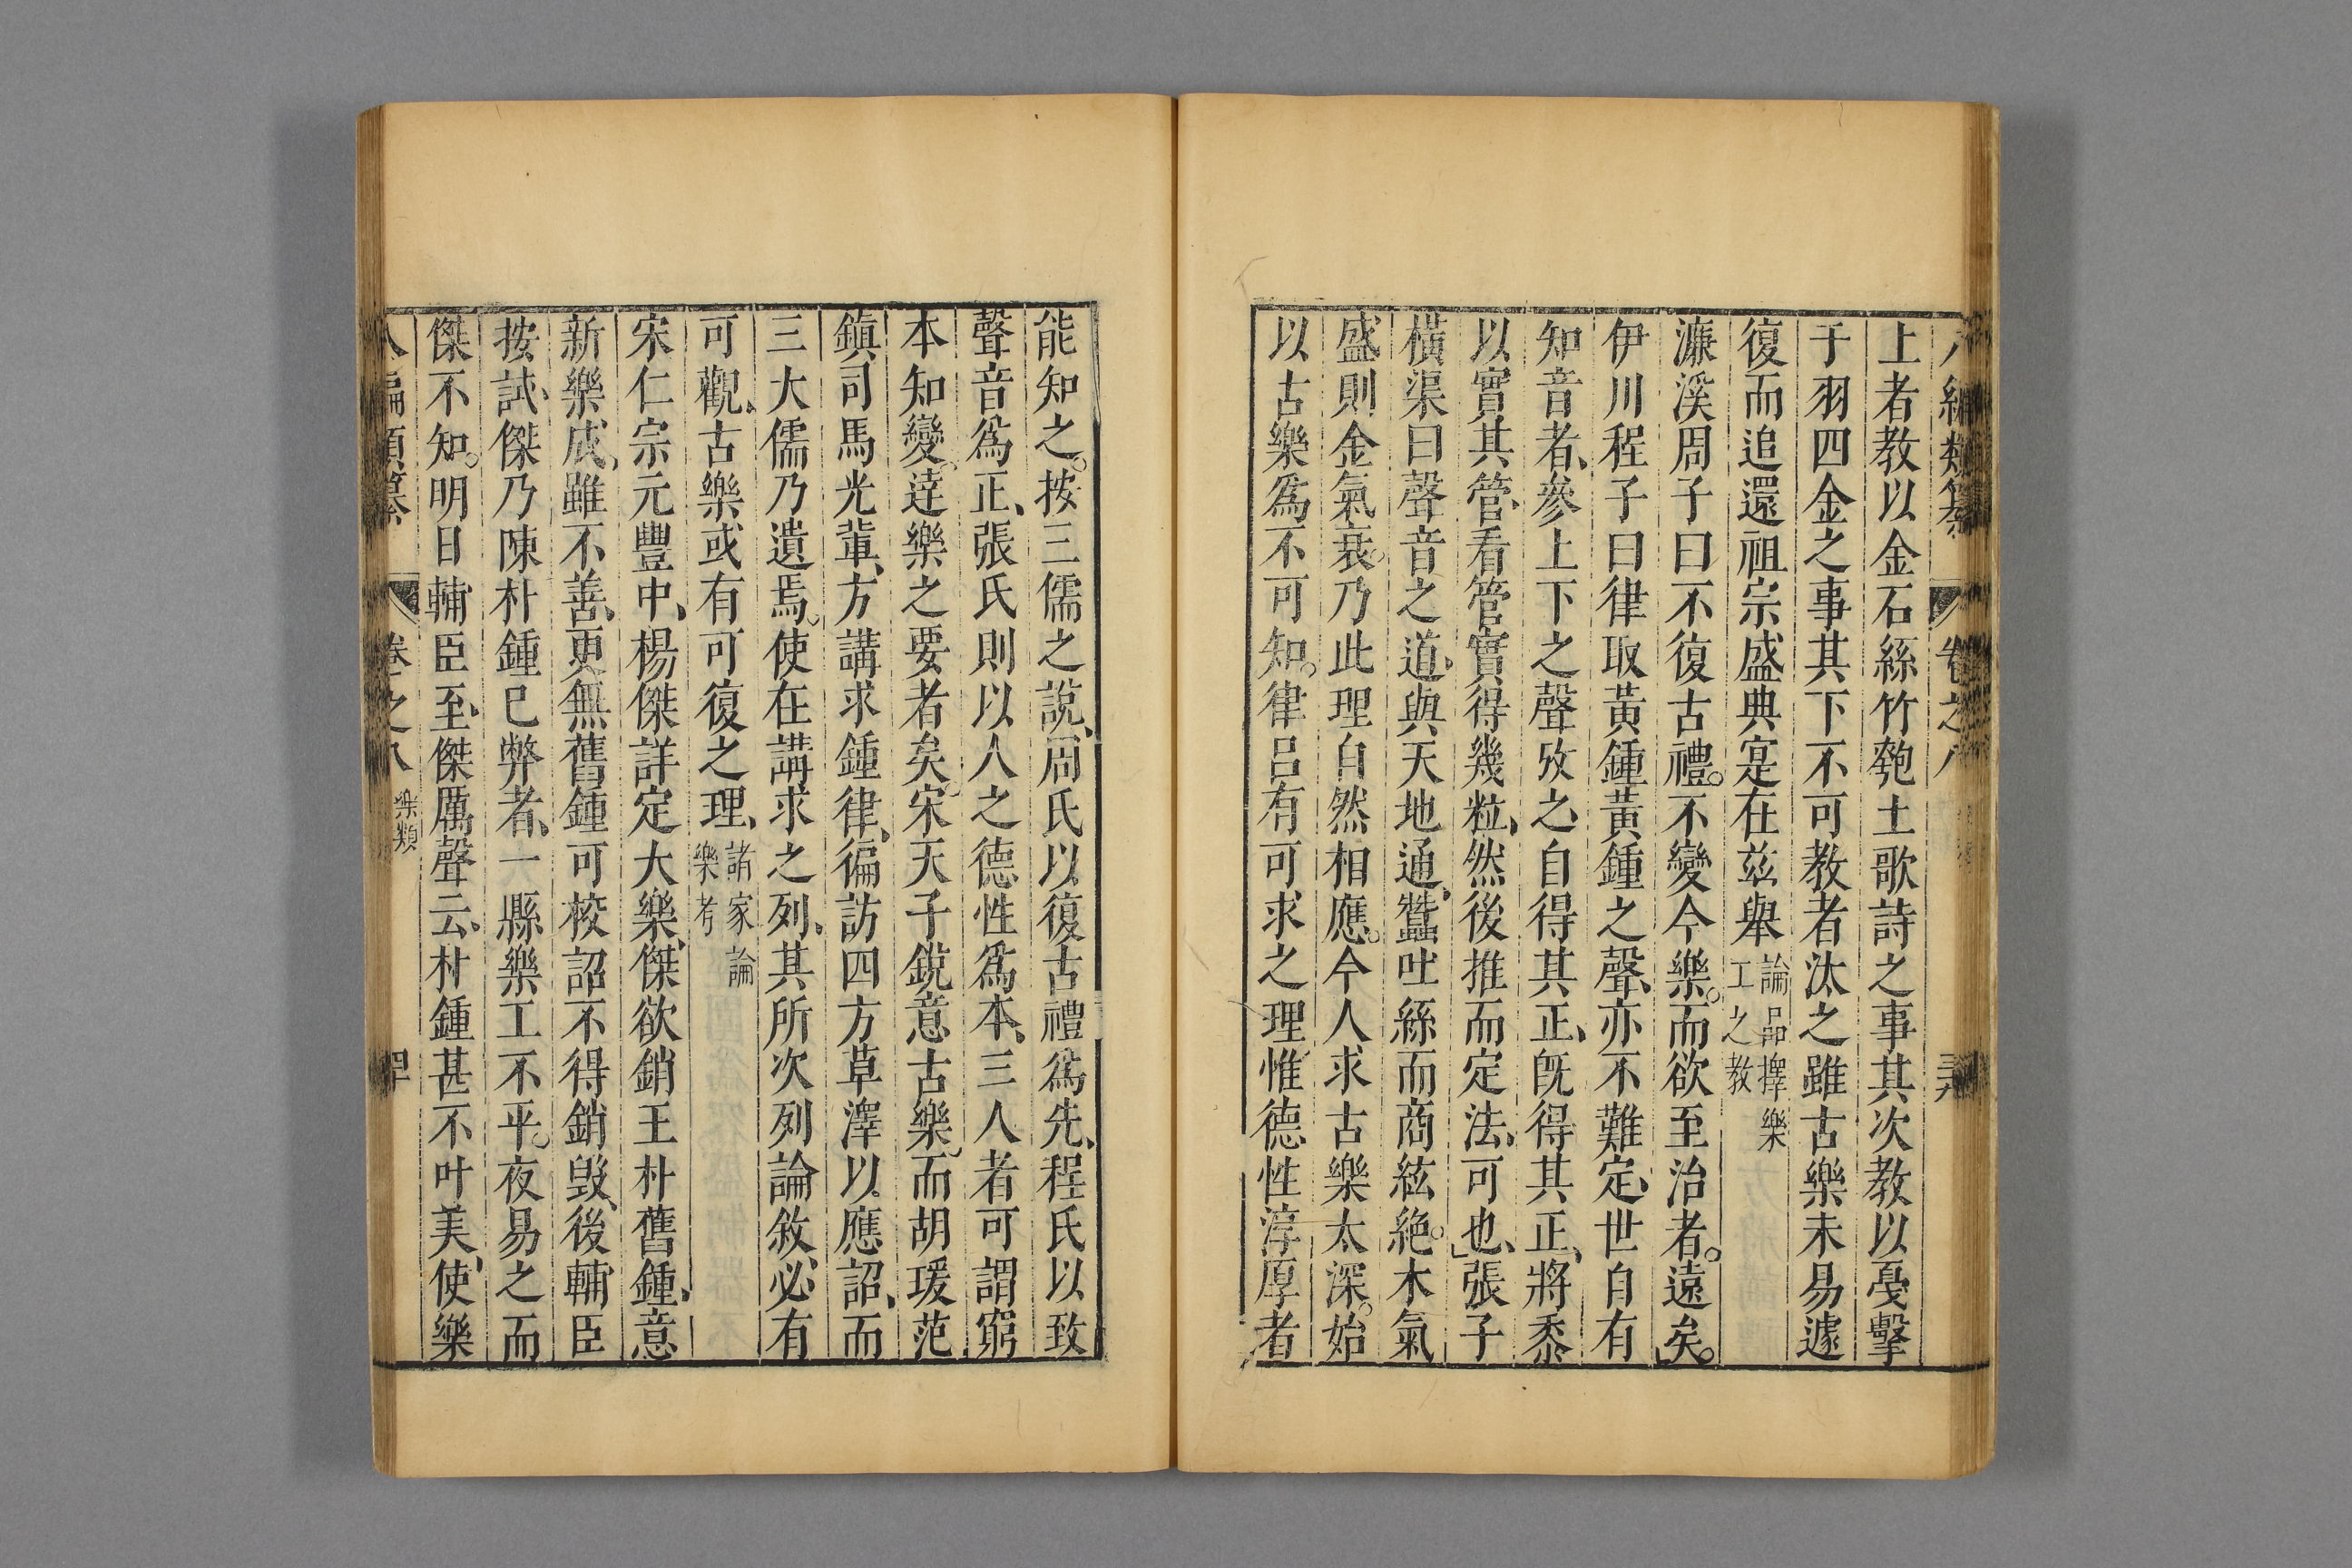 八編類纂 卷之八
上者教以金石絲竹匏土歌詩之事其次教以戞擊
于羽四金之事其下不可教者汰之雖古樂未易遽
復而追還祖宗盛典寔在茲舉論品擇樂工之教
濂溪周子曰不復古禮。不變今樂。而欲至治者。遠矣。
伊川程子曰律取黃鍾黃鍾之聲、亦不難定、世自有
知音者、參上下之聲攷之、自得其正、旣得其正、將黍
以實其管、看管實得幾粒、然後推而定法、可也、張子
橫渠曰聲音之道、與天地通、蠶吐絲而商絃絶。木氣
盛則金氣衰。乃此理自然相應。今人求古樂太深。始
以古樂爲不可知。律呂有可求之理惟德性淳厚者
能知之。按三儒之說、周氏以復古禮爲先、程氏以致
聲音爲正、張氏則以人之德性爲本、三人者可謂窮
本知變。達樂之要者矣。宋天子銳意古樂。而胡瑗范
鎮司馬光輩、方講求鍾律、徧訪四方草澤以應詔、而
三大儒乃遺焉。使在講求之列、其所次列論敘、必有
可觀、古樂或有可復之理、諸家論樂考
宋仁宗元豐中、楊傑詳定大樂、傑欲銷王朴舊鍾、意
新樂成、雖不善、更無舊鍾可校詔不得銷毀、後輔臣
按試、傑乃陳朴鍾已弊者、一縣樂工不平。夜易之而
傑不知。明日輔臣至、傑厲聲云、朴鍾甚不叶美、使樂
八編類纂 卷之八 樂類 四十